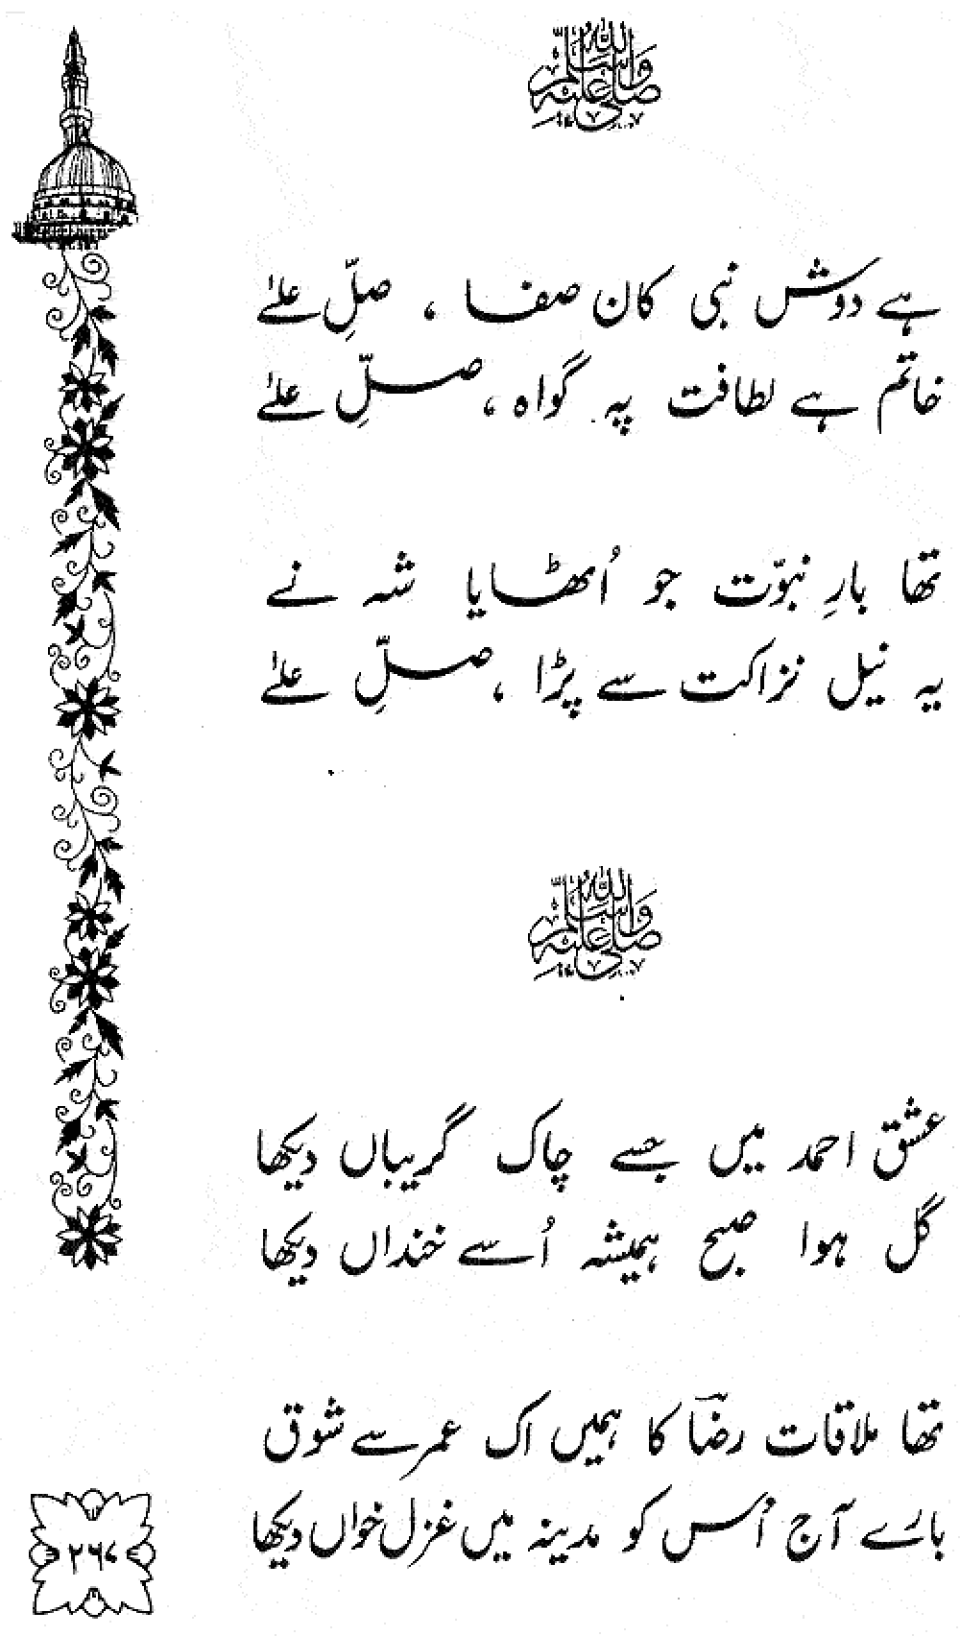 صلی اللہ علیہ وسلم
ہے دوش نبی کان صفا ، صلِّ علیٰ
خاتم ہے لطافت پہ گواہ ، صلِّ علیٰ
تھا بارِ نبوّت جو اُٹھایا شہ نے
یہ نیل نزاکت سے پڑا ، صلِّ علیٰ
صلی اللہ علیہ وسلم
عشق احمد میں جسے چاک گریباں دیکھا
گل ہوا صبح ہمیشہ اُسے خنداں دیکھا
تھا ملاقات رضؔا کا ہمیں اک عمر سے شوق
بارے آج اُس کو مدینہ میں غزل خواں دیکھا
۲۶۷